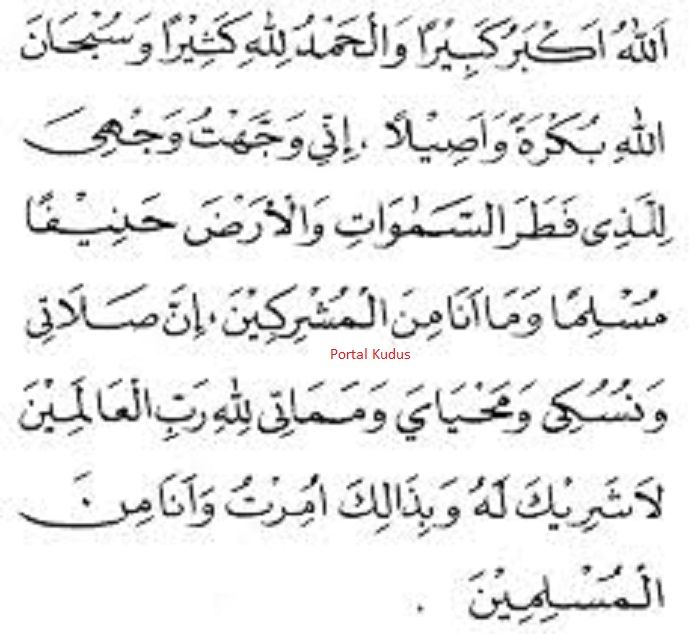 اَللهُ اَكْبَرُ كَبِيْرًا وَالْحَمْدُ لِلّٰهِ كَثِيْرًا وَسُبْحَانَ
اللهِ بُكْرَةً وَاَصِيْلًا . اِنِّي وَجَّهْتُ وَجْهِيَ
لِلَّذِى فَطَرَ السَّمٰوَاتِ وَالْاَرْضَ حَنِيْفًا
مُسْلِمًا وَمَا اَنَا مِنَ الْمُشْرِكِيْنَ . اِنَّ صَلَاتِى
Portal Kudus
وَنُسُكِى وَمَحْيَايَ وَمَمَاتِى لِلّٰهِ رَبِّ الْعَالَمِيْنَ
لَاشَرِيْكَ لَهُ وَبِذَالِكَ اُمِرْتُ وَاَنَا مِنَ
الْمُسْلِمِيْنَ .